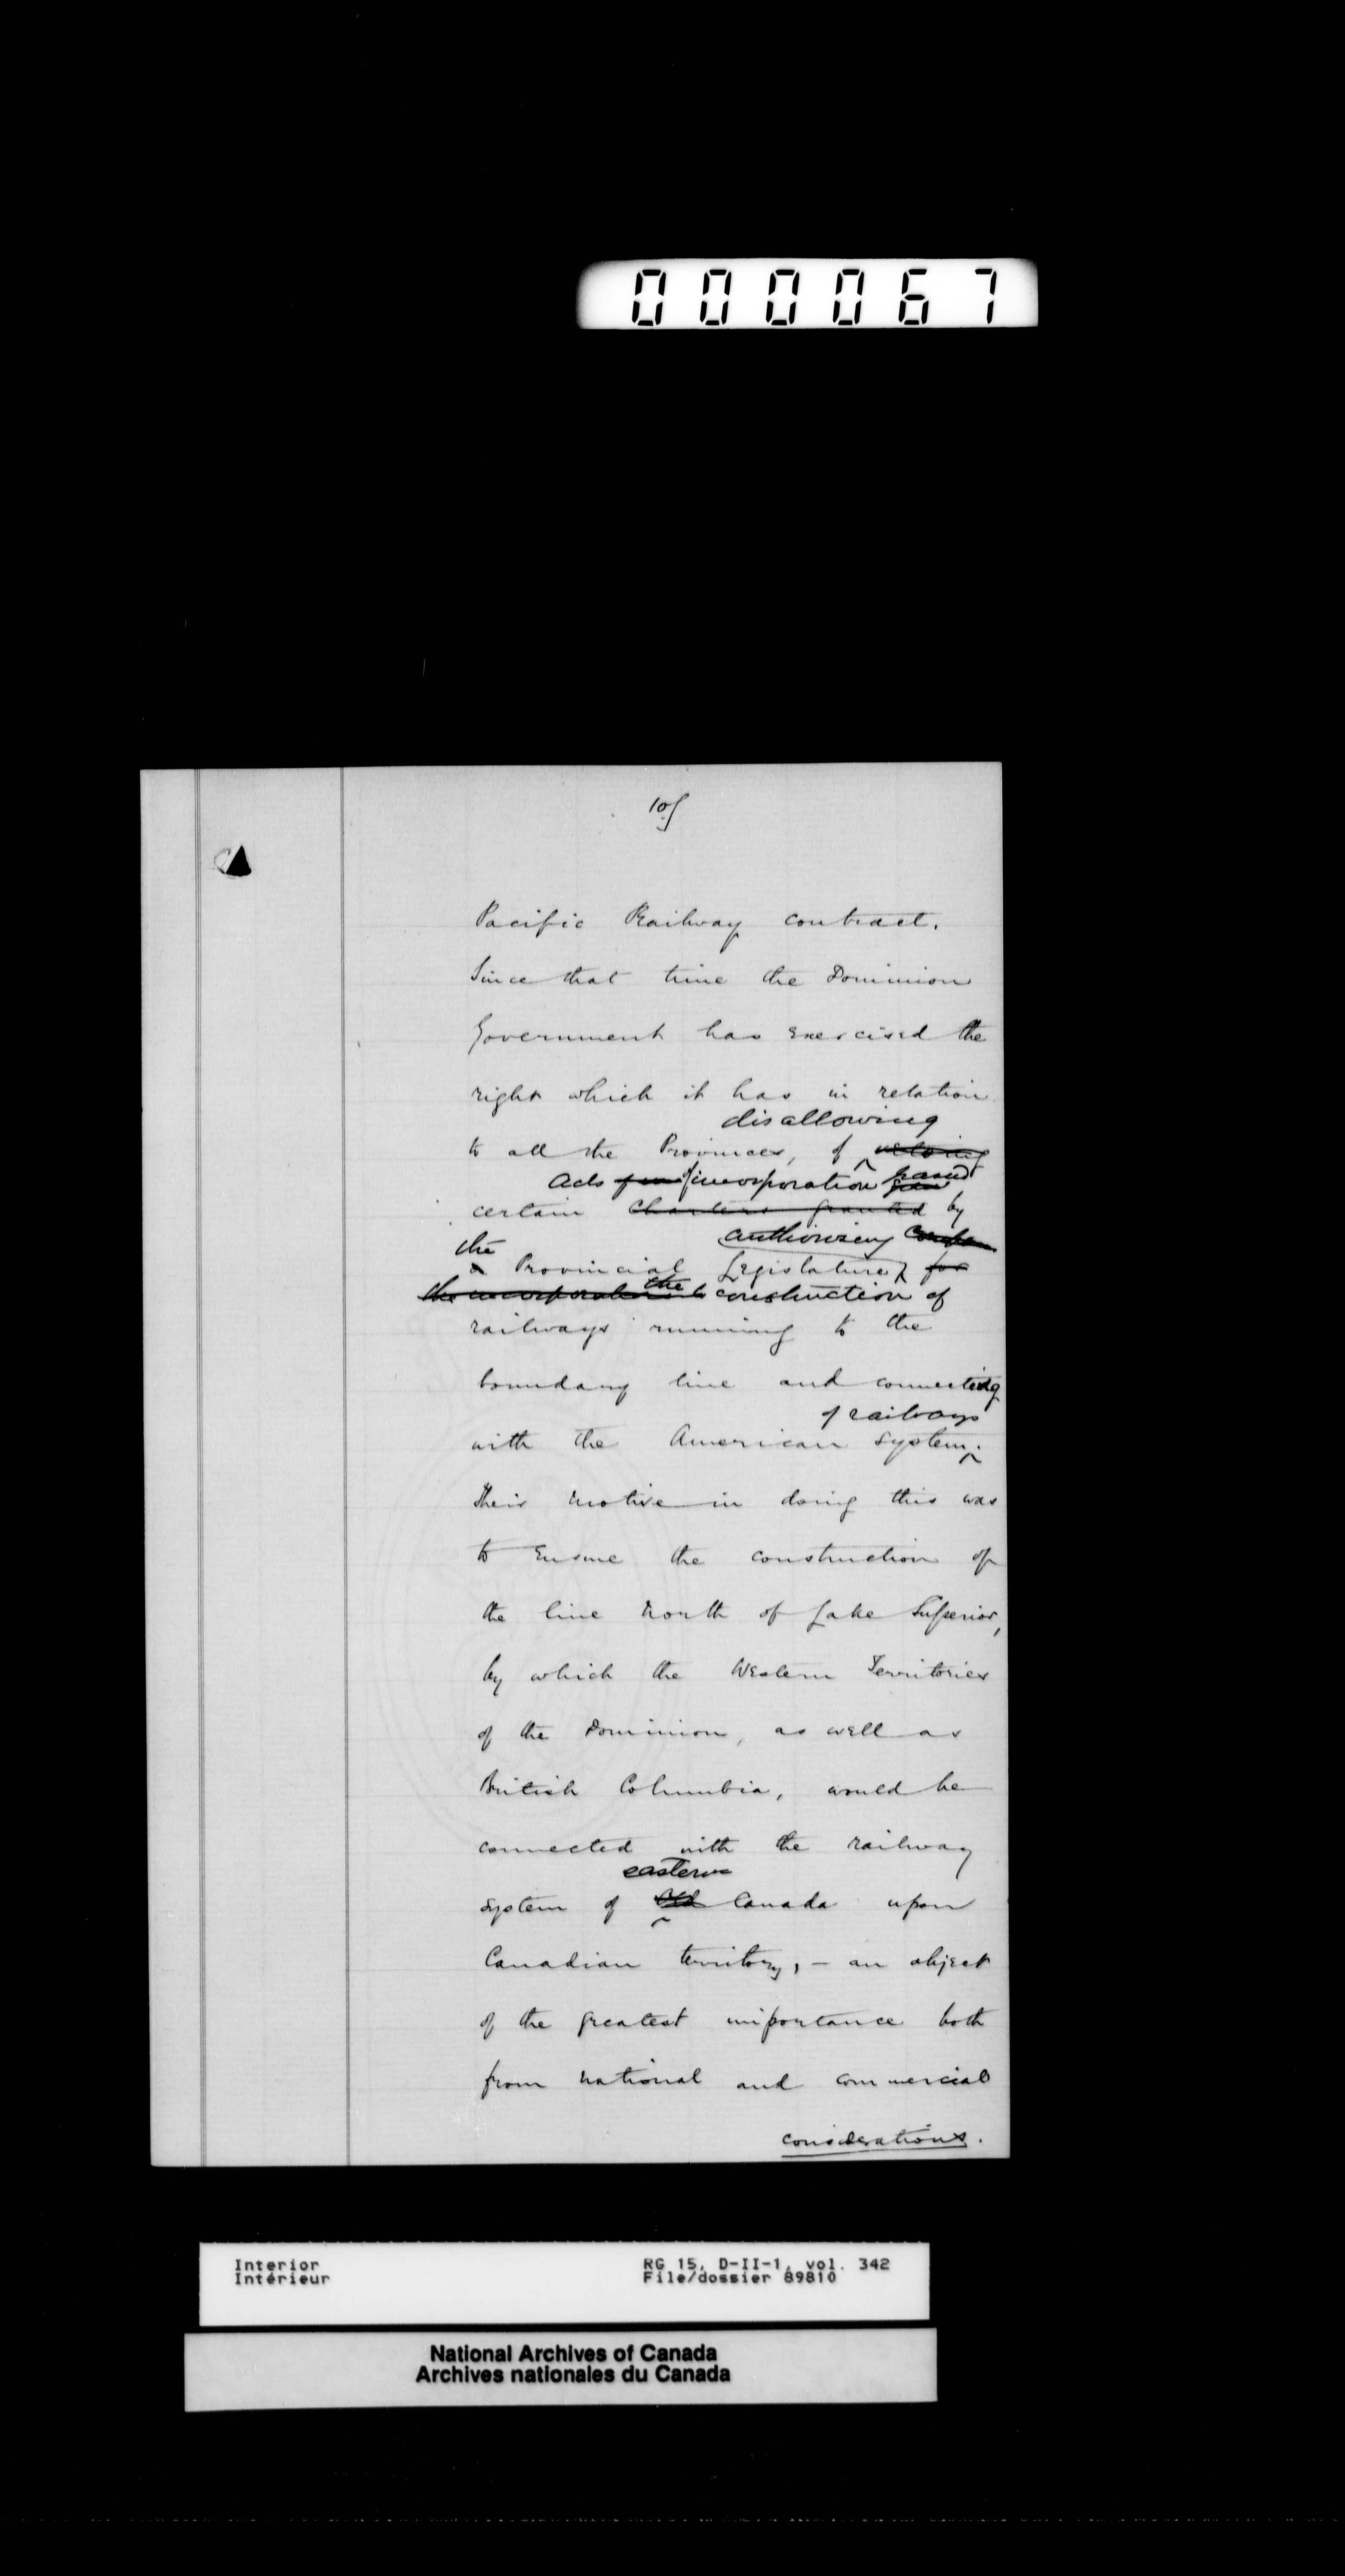 000067
10/
Pacific Railway contract.
Since that time the Dominion
Government has exercised the
right which it has in relation
disallowing
to all the Provinces, of vetoing
Acts of incorporation passed
certain charters granted by
the authorizing
a Provincial Legislature for
the incorporation the construction of
railways running to the
boundary line and connecting
of railways
with the American system.
Their motive in doing this was
to ensure the construction of
the line north of Lake Superior,
by which the Western Territories
of the Dominion, as well as
British Columbia, would be
connected with the railway
eastern
system of Old Canada upon
Canadian territory, - an object
of the greatest importance both
from national and commercial
considerations.
Interior RG 15, D-II-1, vol. 342
Intérieur File/dossier 89810
National Archives of Canada
Archives nationales du Canada